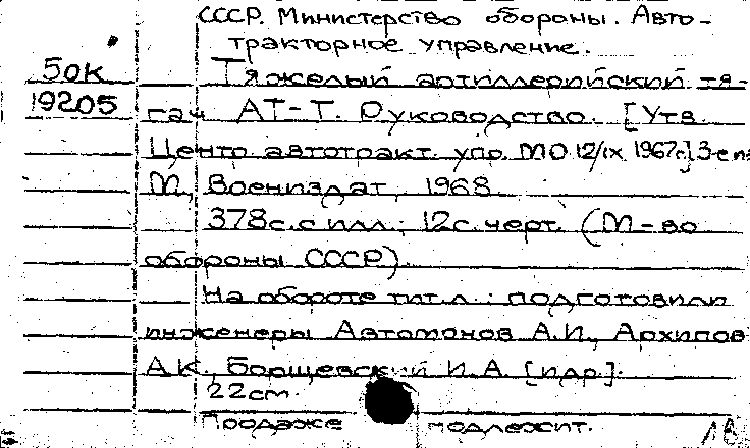 СССР. Министерство обороны. Авто-
тракторное управление.
50К
19205
Тяжелый артиллерийский тя-
гач АТ-Т. Руководство. [Утв.
Центр автотракт. упр. МО 12/IX 1967г.] 3-е из
М., Воениздат, 1968
378с. с илл.; 12с. черт. (М-во
обороны СССР).
На обороте тит. л.: подготовили
инженеры Автомонов А.И., Архипов
А.К., Борщевский И.А. [и др.].
22см.
Продаже подлежит.